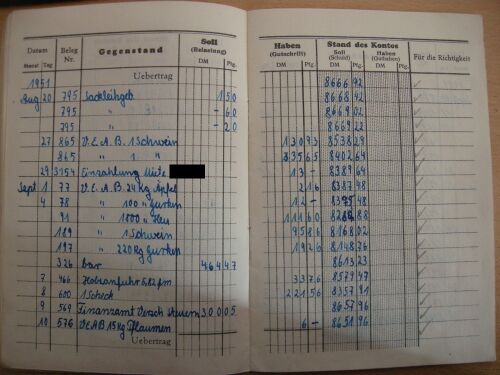 Datum Beleg Nr. Gegenstand Soll (Belastung) Haben (Gutschrift) Stand des Kontos Für die Richtigkeit
Monat Tag DM Pfg. DM Pfg. Soll (Schuld) DM Pfg. Haben (Guthaben) DM Pfg.
1951 Uebertrag 8666 92
Aug 20 795 1 50 8668 42
795 " - 60 8669 02
795 " - 20 8669 22
27 865 V.E.A.B. 1 Schwein 130 93 8538 29
865 " 1 " 135 65 8402 64
29 3154 Einzahlung Miete 13 - 8389 64
Sept 1 77 V.E.A.B. 24 kg Äpfel 2 16 8387 48
4 78 " 100 " Gurken 12 - 8375 48
91 " 1800 " Heu 111 60 8263 88
189 " 1 Schwein 95 86 8168 02
197 " 220 kg Gurken 19 26 8148 76
326 bar 464 47 8613 23
7 466 Holzanfuhr 6,82 fm 33 76 8579 47
8 600 1 Scheck 221 56 8357 91
9 569 Finanzamt 300 05 8657 96
10 576 V.E.A.B. 15 kg Pflaumen 6 - 8651 96
Uebertrag